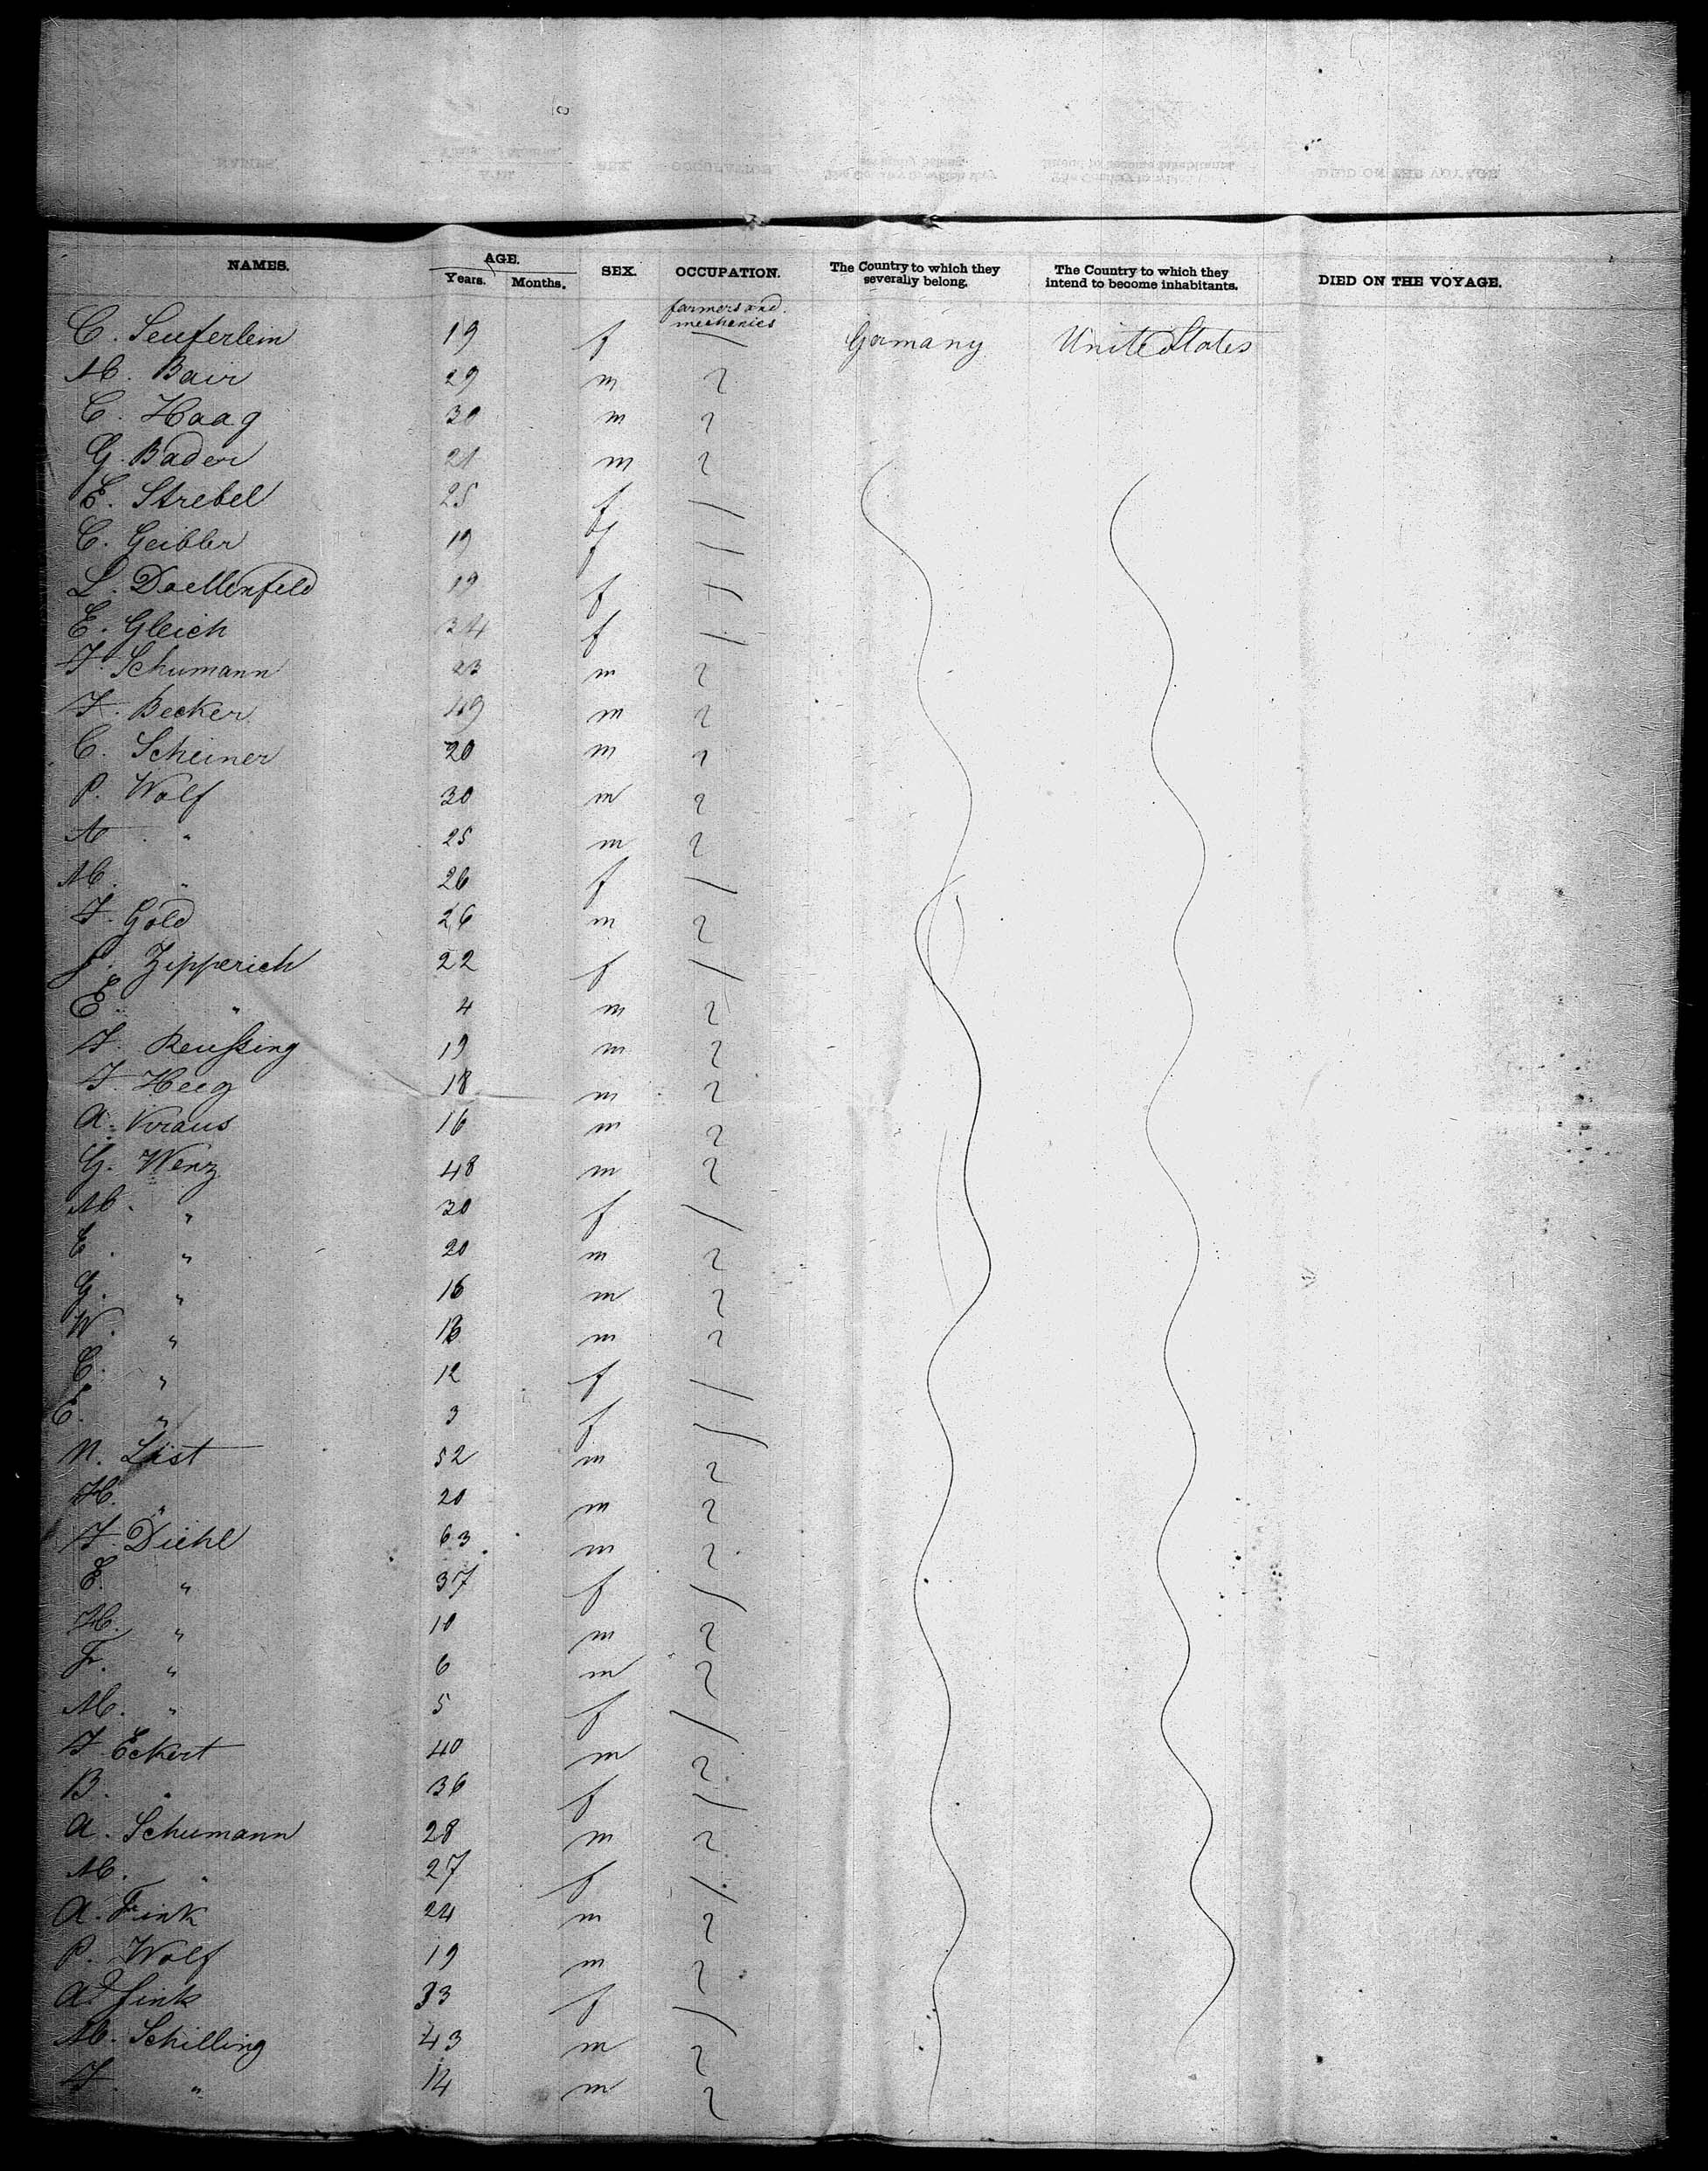 NAMES. AGE. Years. Months. SEX. OCCUPATION. The Country to which they severally belong. The Country to which they intend to become inhabitants. DIED ON THE VOYAGE.
farmers and mechenics
C. Seuferlein 19 f Germany United States
M. Bair 29 m
C. Haag 30 m
G. Bader 21 m
E. Strebel 25 f
C. Geibler 19 f
L. Doellenfeld 19 f
E. Gleich 34 f
J. Schumann 23 m
J. Becker 19 m
C. Scheiner 20 m
P. Wolf 30 m
A " 25 m
M. " 26 f
J. Gold 26 m
J. Zipperich 22 f
E. " 4 m
J. Reussing 19 m
J. Heeg 18 m
A. Kraus 16 m
G. Wenz 48 m
M. " 30 f
E. " 20 m
G. " 16 m
W. " 13 m
C. " 12 f
E. " 3 f
N. List 52 m
H. " 20 m
J. Diehl 63 m
E. " 37 f
H. " 10 m
F. " 6 m
M. " 5 f
J. Eckert 40 m
B. " 36 f
A. Schumann 28 m
M. " 27 f
A. Fink 24 m
P. Wolf 19 m
A. Fink 33 f
M. Schilling 43 m
J. " 14 m